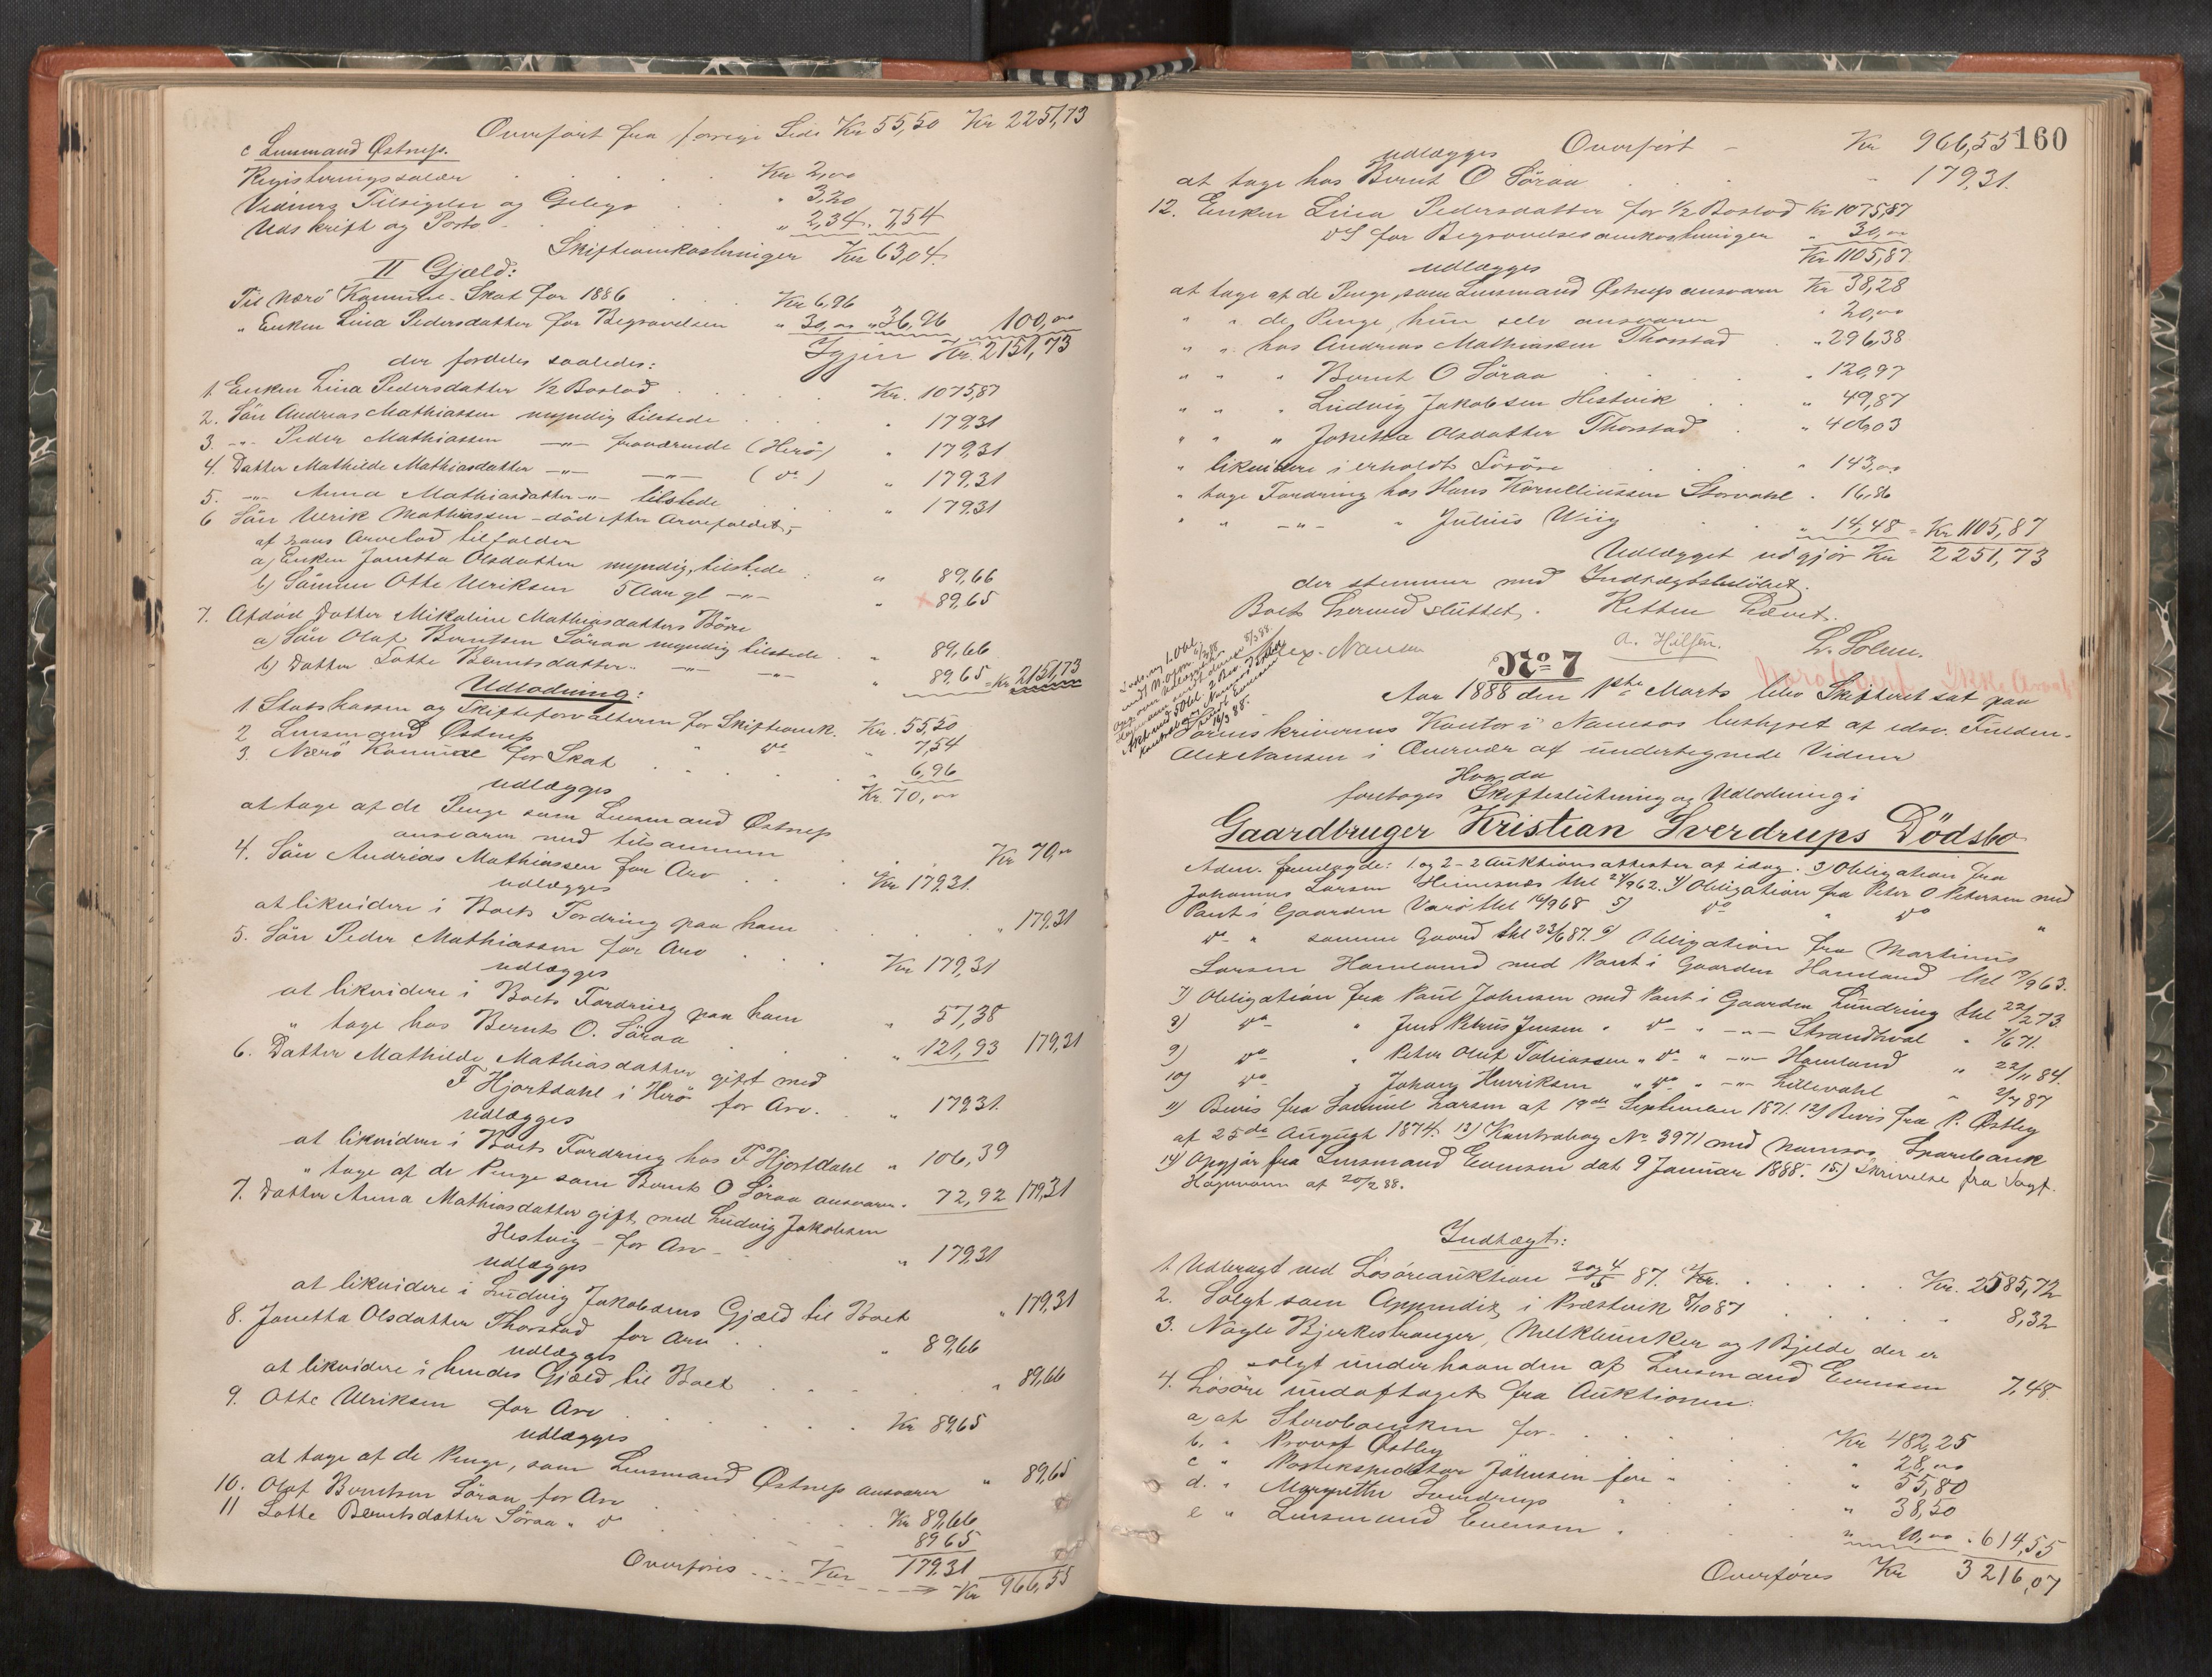 Overført fra forrige Side Kr 55,50 Kr 2251,73
c Lensmand Østrup.
Registreringssalær Kr 2,00
Vidners Tilsigelse og Gebyr " 3,20
Udskrift og Porto " 2,34 . 7,54
Skifteomkostninger Kr 63,04.
II Gjæld:
Til Nærö Kommune-Skat for 1886 Kr 6,96
" Enken Lina Pedersdatter for Begravelsen " 30,00 " 36,96 100,00
Igjen Kr. 2151,73
der fordeles saaledes:
1. Enken Lina Pedersdatter 1/2 Boslod Kr. 1075,87
2. Sön Andreas Mathiassen myndig tilstede " 179,31
3. -"- Peder Mathiassen -"- fraværende (Herö) " 179,31
4. Datter Mathilde Mathiasdatter -"- -"- (do) " 179,31
5. -"- Anna Mathiasdatter -"- tilstede " 179,31
6 Sön Ulrik Mathiassen - död efter Arvefaldet,
af hans Arvelod tilfalder
a) Enken Janetta Olsdatter myndig, tilstede " 89,66
b) Sönnen Otte Ulriksen 5 Aar gl -"- " 89,65
7. Afdød Datter Mikaline Mathiasdatters Börn
a) Sön Olaf Berntsen Söraa myndig tilstede " 89,66
b) Datter Lotte Berntsdatter -"- -"- " 89,65 = Kr 2151,73
Udlodning:
1. Statskassen og Skifteforvalteren for Skifteomk. Kr. 55,50
2 Lensmand Østrup do " 7,54
3. Nærö Kommune for Skat " 6,96
udlægges Kr. 70,00
at tage af de Penge som Lensmand Østrup
ansvarer med tilsammen Kr 70,00
4. Sön Andreas Mathiassen for Arv Kr 179,31.
udlægges
at likvidere i Boets Fordring paa ham " 179,31
5. Sön Peder Mathiassen for Arv Kr 179,31
udlægges
at likvidere i Boets Fordring paa ham " 57,38
" tage hos Bernt O. Söraa " 121,93 179,31
6. Datter Mathilde Mathiasdatter gift med
F Hjortdahl i Herö for Arv. " 179,31.
udlægges
at likvidere i Boets Fordring hos F Hjortdahl " 106,39
" tage af de Penge som Bernt O Söraa ansvarer " 72,92 179,31
7. Datter Anna Mathiasdatter gift med Ludvig Jakobsen
Hestvig - for Arv - " 179,31
udlægges
at likvidere i Ludvig Jakobsens Gjæld til Boet " 179,31
8. Janetta Olsdatter Thorstad for Arv " 89,66
udlægges
at likvidere i hendes Gjæld til Boet " 89,66
9. Otte Ulriksen for Arv Kr 89,65
udlægges
at tage af de Penge, som Lensmand Østrup ansvarer " 89,65
10. Olaf Berntsen Söraa for Arv Kr 89,66
11 Lotte Berntsdatter Söraa " do 89,65
Overføres Kr 179,31 Kr 966,55
160
Overført - Kr 966,55
udlægges
at tage hos Bernt O Söraa " 179,31.
12. Enken Lina Pedersdatter for 1/2 Boslod Kr 1075,87
do for Begravelsesomkostninger " 30,00
Kr 1105,87
udlægges
at tage af de Penge, som Lensmand Østrup ansvarer Kr 38,28
" " de Penge, hun selv ansvarer " 20,00
" " hos Andreas Mathiassen Thorstad " 296,38
" " " Bernt O Söraa " 120,97
" " " Ludvig Jakobsen Hestvik " 49,87
" " " Janetta Olsdatter Thorstad " 406,03
" likvidere i erholdt Lösöre " 143,00
" tage Fordring hos Hans Korneliussen Storvahl " 16,86
" " -"- " Julius Wiig " 14,48 = Kr 1105,87
Udlægget udgjør Kr 2251,73
der stemmer med Indtægtsbeløbet.
Boets hermed sluttet. Retten hævet.
Alex. Nansen A. Hilsen. L. Solem.
No 7
Aar 1888 den 1ste Marts blev Skifteret sat paa
Sorenskriverens Kontor i Namsos bestyret af edsv. Fuldm.
Alex Nansen i Overvær af undertegnede Vidner
Hvorda
foretoges Skifteslutning og Udlodning i
Gaardbruger Kristian Sverdrups Dödsbo
Adm. fremlagde: 1 og 2 - 2 Auktionsattester af idag. 3) Obligation fra
Johannes Larsen Heimsnæs thl 24/9 62. 4) Obligation fra Peter O Petersen med
Pant i Gaarden Varö thl 16/9 68 5) do " do "
do " samme Gaard thl 23/6 87. 6) Obligation fra Martinus
Larsen Hamland med Pant i Gaarden Hamland thl 17/9 63.
7) Obligation fra Paul Johnsen med Pant i Gaarden Lundring thl 22/2 73.
8) do " Jens Petrus Jensen " do " -"- Strandhval " 7/6 71.
9) do " Peter Oluf Tobiassen " do " -"- Hamland " 22/11 84.
10) do " Johan Henriksen " do " -"- Lillevahl " 2/7 87
11) Bevis fra Samuel Larsen af 19de September 1871. 12) Bevis fra P. Østby
af 25de August 1874. 13) Kontrabog No 3971 med Namsos Sparebank
14) Opgjør fra Lensmand Evensen dat 9 Januar 1888. 15.) Skrivelse fra Vogt.
Hagemann af 20/2 88.
Indtægt:
1. Udbragt ved Lösöreauktion 3 og 4/5 87. Kr. 2585,72
2. Solgt som Appendix i Præstvik 8/10 87 8,32
3. Nogle Bjerkestranger, Melkbunker og 1 Bjelde der er
solgt underhaanden af Lensmand Evensen 7,48
4. Lösöre undaftaget fra Auktionen:
a, af Stervboenken for Kr 482,25
b. " Provst Østby " 28,00
c " Postekspeditør Johnsen for " 55,80
d. " Margrethe Sverdrup " 38,50
e " Lensmand Evensen " 10,00 . 614,55
Overføres Kr 3216,07